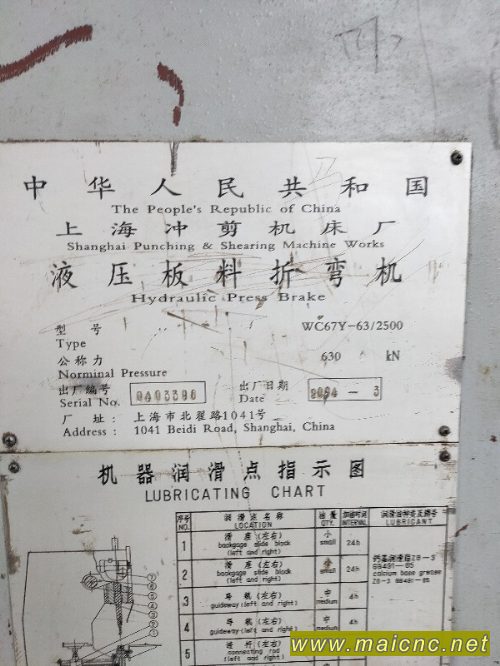 中华人民共和国
The People's Republic of China
上海冲剪机床厂
Shanghai Punching & Shearing Machine Works
液压板料折弯机
Hydraulic Press Brake
型号 WC67Y-63/2500
Type
公称力 630 kN
Norminal Pressure
出厂编号 出厂日期
Serial No. Date
厂址：上海市北翟路1041号
Address : 1041 Beidi Road, Shanghai, China
机器润滑点指示图
LUBRICATING CHART
序号 润滑点名称 油量 加油时间 润滑油种类及牌号
NO. LOCATION QTY. INTERVAL LUBRICANT
1 滑座(左右) 小 24h
backgage slide block small
(left and right)
2 滑座(左右) 24h
backgage slide block small
(left and right)
3 导轨(左右) 中 4h
guideway (left and right) medium
4 导轨(左右) 中 4h
guideway (left and right) medium
5 连杆(左右) 中
connecting rod
钙基润滑脂ZG-3
GB491-65
calcium base grease
ZG-3 GB491-65
www.maicnc.net